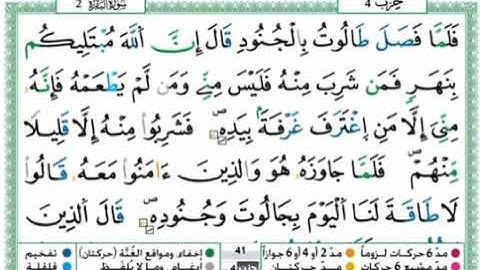 سورة البقرة 2
حزب 4
فَلَمَّا فَصَلَ طَالُوتُ بِالْجُنُودِ قَالَ إِنَّ اَ۬للَّهَ مُبْتَلِيكُم
بِنَهَرٍ فَمَن شَرِبَ مِنْهُ فَلَيْسَ مِنِّے وَمَن لَّمْ يَطْعَمْهُ فَإِنَّهُۥ
مِنِّىَ إِلَّا مَنِ اِ۪غْتَرَفَ غَرْفَةَۢ بِيَدِهِۦۖ فَشَرِبُواْ مِنْهُ إِلَّا قَلِيلًا
مِّنْهُمْۖ فَلَمَّا جَاوَزَهُۥ هُوَ وَالذِينَ ءَامَنُواْ مَعَهُۥ قَالُواْ
لَا طَاقَةَ لَنَا اَ۬لْيَوْمَ بِجَالُوتَ وَجُنُودِهِۦۖ قَالَ اَ۬لذِينَ
مدّ 6 حركات لزوماً مدّ 2 أو 4 أو 6 جوازاً 41 إخفاء ومواقع الغُنَّة (حركتان) تفخيم
مدّ مشبع 6 حركات مدّ حركتان إدغام ، وما لا يُلفظ قلقلة